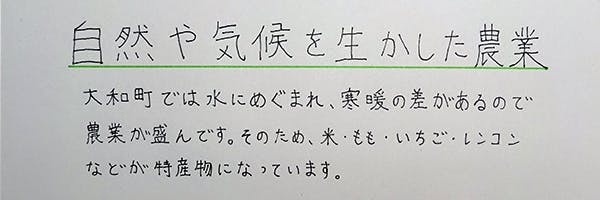 自然や気候を生かした農業
大和町では水にめぐまれ、寒暖の差があるので
農業が盛んです。そのため、米・もも・いちご・レンコン
などが特産物になっています。